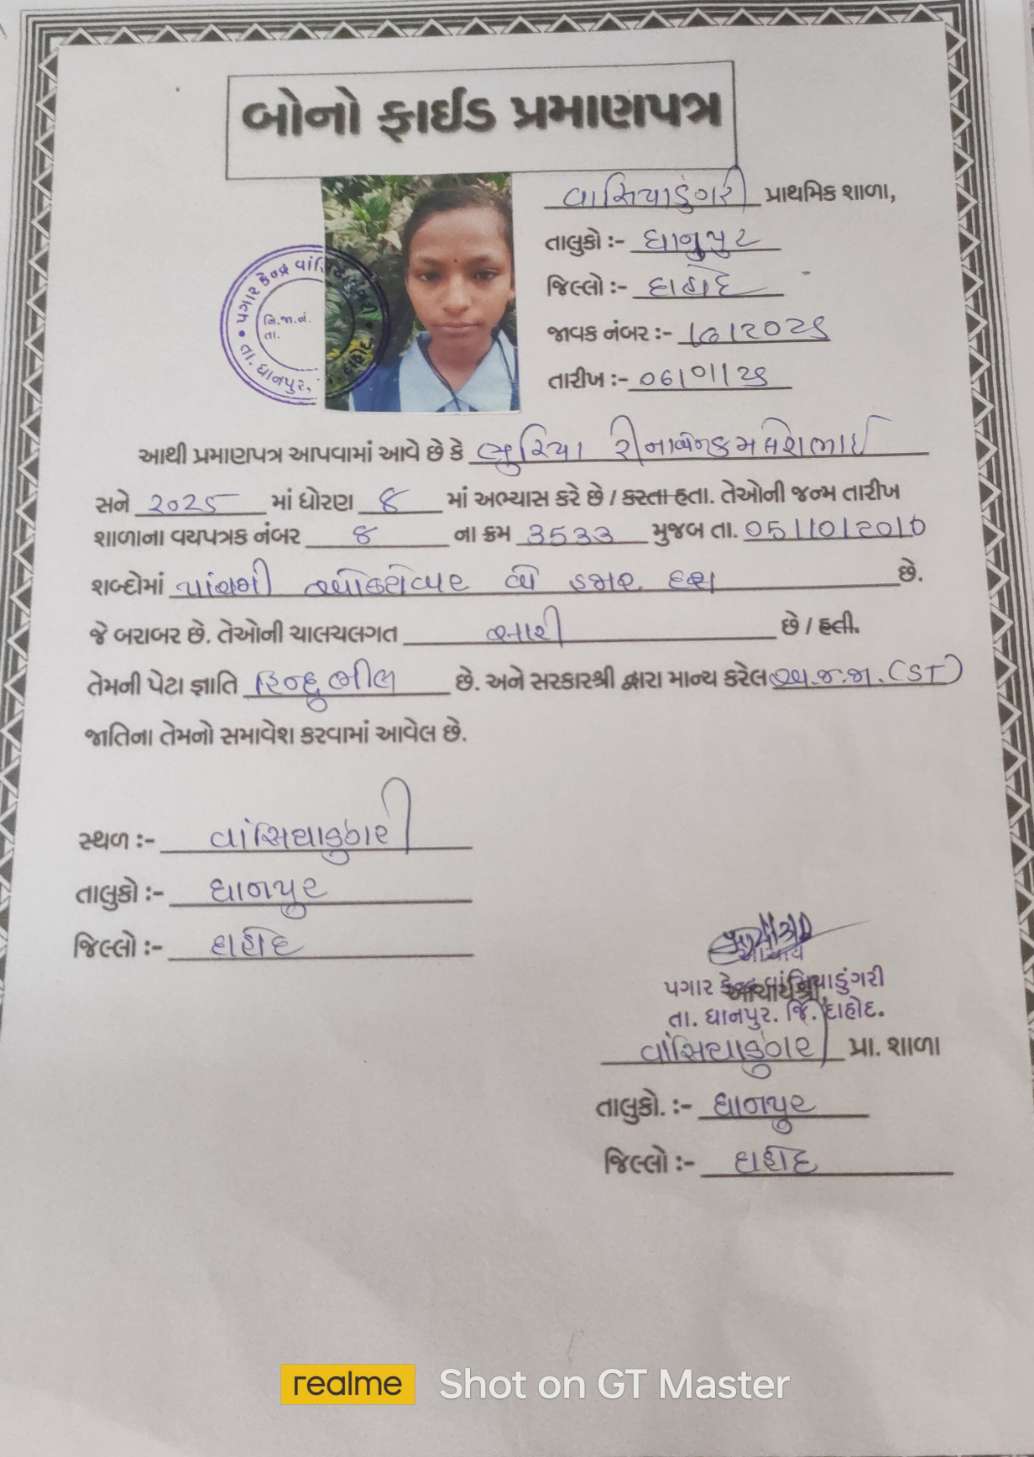 બોનો ફાઈડ પ્રમાણપત્ર
વાંસિયાડુંગરી પ્રાથમિક શાળા,
તાલુકો :- ધાનપુર
જિલ્લો :- દાહોદ
જાવક નંબર :-
તારીખ :- 06/01/25
પગાર કેન્દ્ર વાંસિયાડુંગરી
જિ.જા.નં.
તા.
તા. ધાનપુર,
આથી પ્રમાણપત્ર આપવામાં આવે છે કે ભુરિયા રીનાબેન કમલેશભાઈ
સને 2025 માં ધોરણ ૪ માં અભ્યાસ કરે છે / કરતા હતા. તેઓની જન્મ તારીખ
શાળાના વયપત્રક નંબર ૪ ના ક્રમ 3533 મુજબ તા. 05/10/2010
શબ્દોમાં પાંચમી ઓક્ટોબર બે હજાર દસ છે.
જે બરાબર છે. તેઓની ચાલચલગત સારી છે / હતી.
તેમની પેટા જ્ઞાતિ હિન્દુ ભીલ છે. અને સરકારશ્રી દ્વારા માન્ય કરેલ અ.જ.જા. (ST)
જાતિના તેમનો સમાવેશ કરવામાં આવેલ છે.
સ્થળ :- વાંસિયાડુંગરી
તાલુકો :- ધાનપુર
જિલ્લો :- દાહોદ
આચાર્ય
પગાર કેન્દ્ર વાંસિયાડુંગરી
આચાર્યશ્રી,
તા. ધાનપુર. જિ. દાહોદ.
વાંસિયાડુંગરી પ્રા. શાળા
તાલુકો. :- ધાનપુર
જિલ્લો :- દાહોદ
realme Shot on GT Master